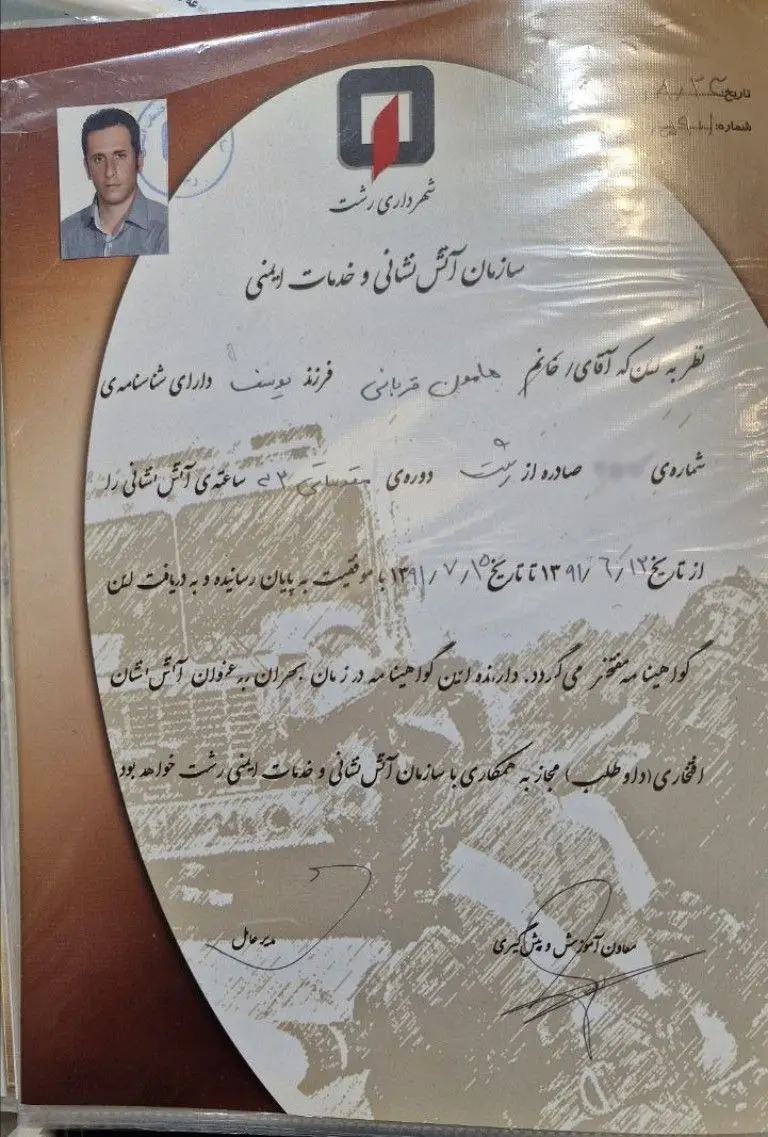 تاریخ:
شماره:
شهرداری رشت
سازمان آتش نشانی و خدمات ایمنی
نظر به این که آقای/ خانم هامون قربانی فرزند یوسف دارای شناسنامه‌ی
شماره‌ی صادره از رشت دوره‌ی مقدماتی ۳۰ ساعته‌ی آتش نشانی را
از تاریخ ۱۳۹۱/۶/۱۳ تا تاریخ ۱۳۹۱/۷/۱۵ با موفقیت به پایان رسانیده و به دریافت این
گواهینامه مفتخر می گردد. دارنده این گواهینامه در زمان بحران به عنوان آتش نشان
افتخاری (داوطلب) مجاز به همکاری با سازمان آتش نشانی و خدمات ایمنی رشت خواهد بود
معاون آموزش و پیش گیری
مدیر عامل